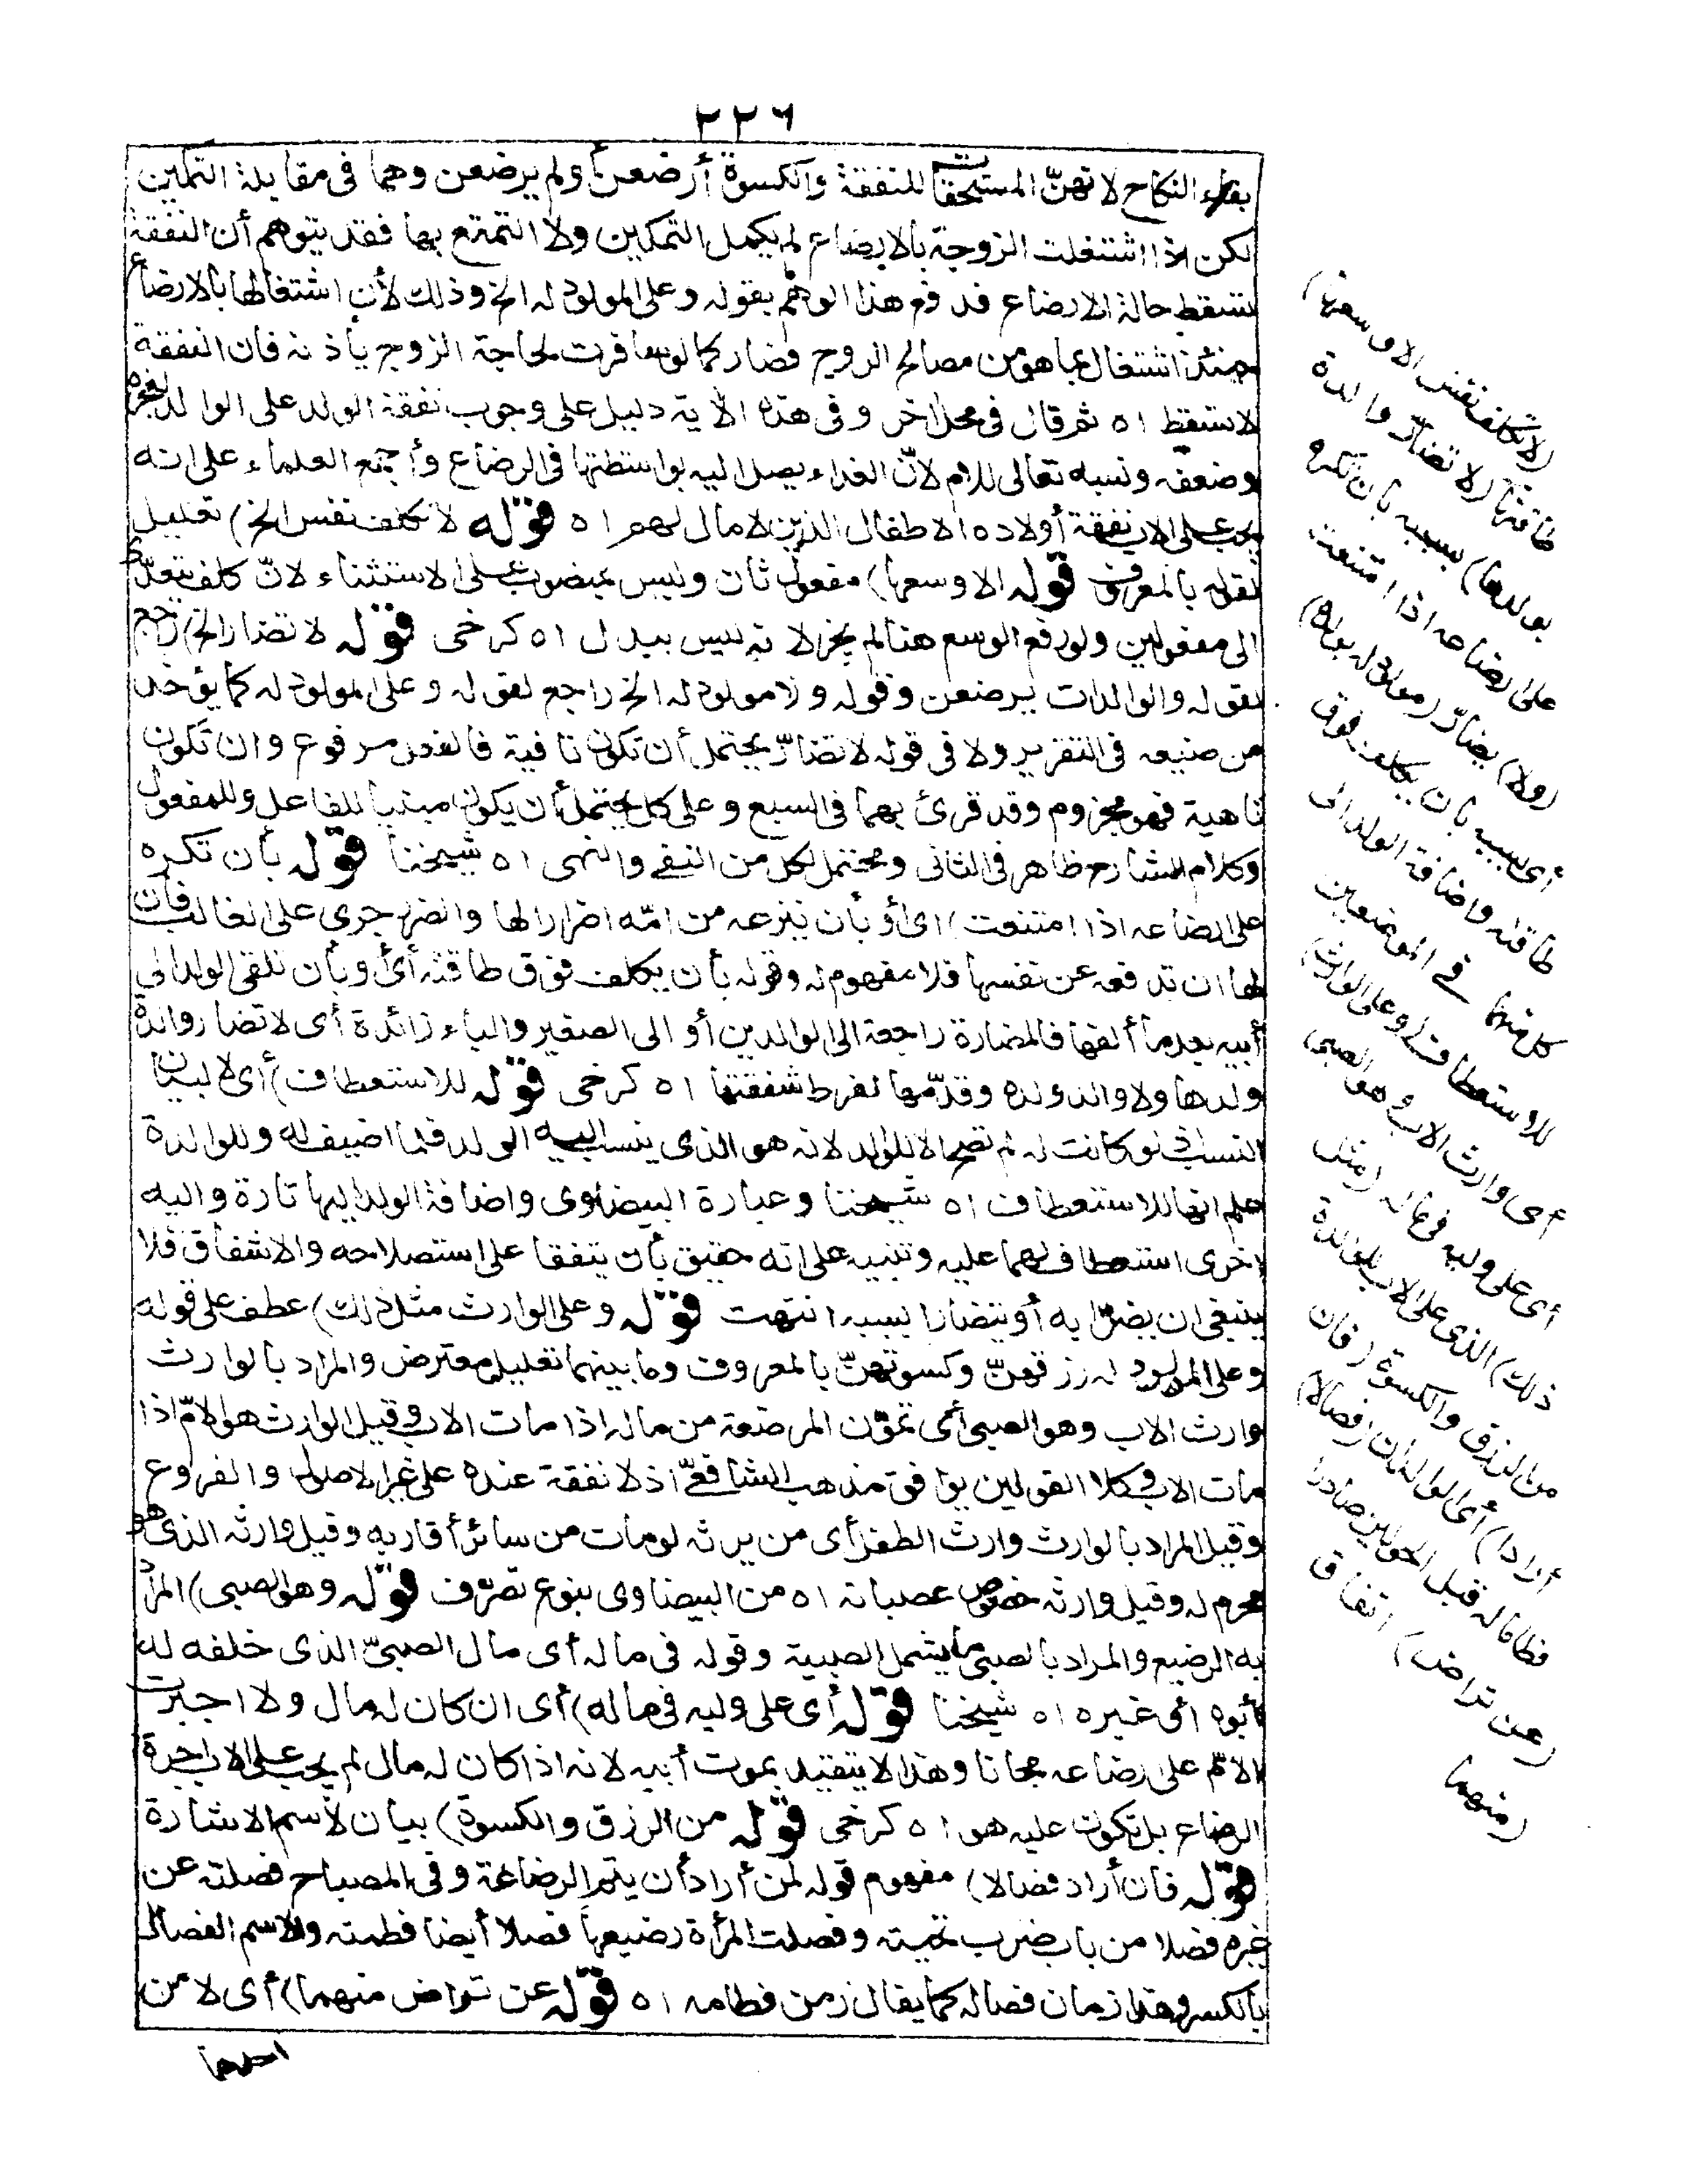 ٢٢٦
بقاء النكاح لانهنّ المستحقات للنفقة والكسوة أرضعن أو لم يرضعن وهما فى مقابلة التمكين
لكن اذا اشتغلت الزوجة بالارضاع لم يكمل التمكين ولا التمتع بها فقد يتوهم أن النفقة
تسقط حالة الارضاع فدفع هذا الوهم بقوله وعلى المولود له الخ وذلك لأن اشتغالها بالارضاع
حينئذ اشتغال بما هو من مصالح الزوج فصار كما لو سافرت لحاجة الزوج باذنه فان النفقة
لا تسقط اه ثم قال فى محل اخر وفى هذه الاية دليل على وجوب نفقة الولد على الوالد لعجزه
وضعفه ونسبه تعالى للام لانّ الغذاء يصل اليه بواسطتها فى الرضاع وأجمع العلماء على انه
يجب على الاب نفقة أولاده الاطفال الذين لا مال لهم اه قوله لا تكلف نفس الخ) تعليل
لقوله بالمعروف قوله الا وسعها) مفعول ثان وليس بمنصوب على الاستثناء لانّ كلف يتعدّى
الى مفعولين ولو رفع الوسع هنا لم يجز لانه ليس ببدل اه كرخى قوله لا تضار الخ) راجع
لقوله والوالدات يرضعن وقوله ولا مولود له الخ راجع لقوله وعلى المولود له كما يؤخذ
من صنيعه فى التقرير ولا فى قوله لا تضارّ يحتمل أن تكون نافية فالفعل مرفوع وان تكون
ناهية فهو مجزوم وقد قرئ بهما فى السبع وعلى كل يحتمل أن يكون مبنيا للفاعل وللمفعول
وكلام الشارح ظاهر فى الثانى ومحتمل لكل من النفى والنهى اه شيخنا قوله بأن تكره
على ارضاعه اذا امتنعت) اى أو بأن ينزعه من امّه اضرارا لها والضرر جرى على الغالب فان
لها ان تدفعه عن نفسها فلا مفهوم له وقوله بأن يكلف فوق طاقته أى أو بأن تلقى الولد الى
أبيه بعد ما ألفها فالمضارة راجعة الى الوالدين أو الى الصغير والباء زائدة أى لا تضار والدة
ولدها ولا والد ولده وقدّمها لفرط شفقتها اه كرخى قوله للاستعطاف) أى لا لبيان
النسب اذ لو كانت له لم تصح الا للوالد لانه هو الذى ينسب اليه الولد فلما اضيف له وللوالدة
علم انها للاستعطاف اه شيخنا وعبارة البيضاوى واضافة الولد اليها تارة واليه
اخرى استعطاف لهما عليه وتنبيه على انه حقيق بأن يتفقا على استصلاحه والاشفاق فلا
ينبغى ان يضرّا به أو يتضارا بسببه انتهت قوله وعلى الوارث مثل ذلك) عطف على قوله
وعلى المولود له رزقهنّ وكسوتهنّ بالمعروف وما بينهما تعليل معترض والمراد بالوارث
وارث الاب وهو الصبى أى تمؤّن المرضعة من ماله اذا مات الاب وقيل الوارث هو الامّ اذا
مات الاب وكلا القولين يوافق مذهب الشافعىّ اذ لا نفقة عنده على غير الاصول والفروع
وقيل المراد بالوارث وارث الطفل أى من يرثه لو مات من سائر أقاربه وقيل وارثه الذى هو
محرم له وقيل وارثه خصوص عصباته اه من البيضاوى بنوع تصرّف قوله وهو الصبى) المراد
به الرضيع والمراد بالصبى ما يشمل الصبية وقوله فى ماله أى مال الصبىّ الذى خلفه له
أبوه أى غيره اه شيخنا قوله أى على وليه فى ماله) أى ان كان له مال ولا اجبرت
الامّ على رضاعه مجانا وهذا لا يتقيد بموت أبيه لانه اذا كان له مال لم يجب على الاب اجرة
الرضاع بل تكون عليه هو اه كرخى قوله من الرزق والكسوة) بيان لاسم الاشارة
قوله فان أراد فصالا) مفهوم قوله لمن أراد أن يتم الرضاعة وفى المصباح فصلته عن
غيره فصلا من باب ضرب نحيته وفصلت المرأة رضيعها فصلا أيضا فطمته والاسم الفصال
بالكسر وهذا زمان فصاله كما يقال زمن فطامه اه قوله عن تراض منهما) أى لا من
احدهما
(لا تكلف نفس الا وسعها)
طاقتها (لا تضارّ والدة
بولدها) بسببه بأن تكره
على ارضاعه اذا امتنعت
(ولا) يضارّ (مولود له بولده)
أى بسببه بان يكلف فوق
طاقته واضافة الولد الى
كل منهما فى الموضعين
للاستعطاف (وعلى الوارث)
أى وارث الاب وهو الصبى
أى على وليه فى ماله (مثل
ذلك) الذى على الاب للوالدة
من الرزق والكسوة (فان
أرادا) أى الوالدان (فصالا)
فطاما له قبل الحولين صادرا
(عن تراض) اتفاق
(منهما